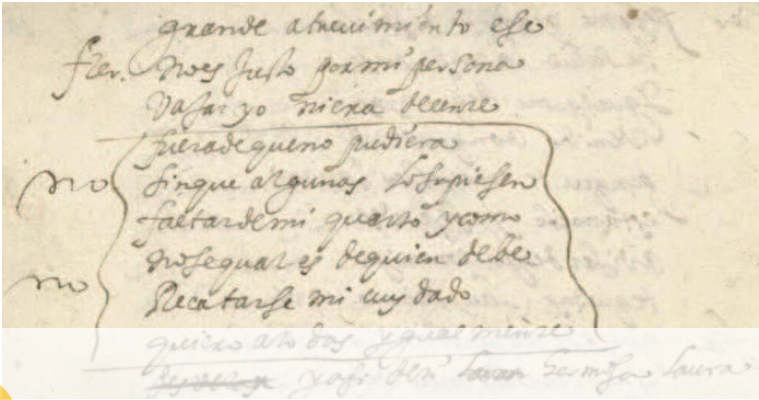 grande atreuimiento ese
fer. no es justo por mi persona
vajar yo ni era decente
fuera de que no pudiera
no sin que algunas lo supiesen
faltar de mi quarto y como
no se qual es de quien debe
no Recatarse mi cuydado
quiero a todas ygualmente
y asi den hermosa Laura